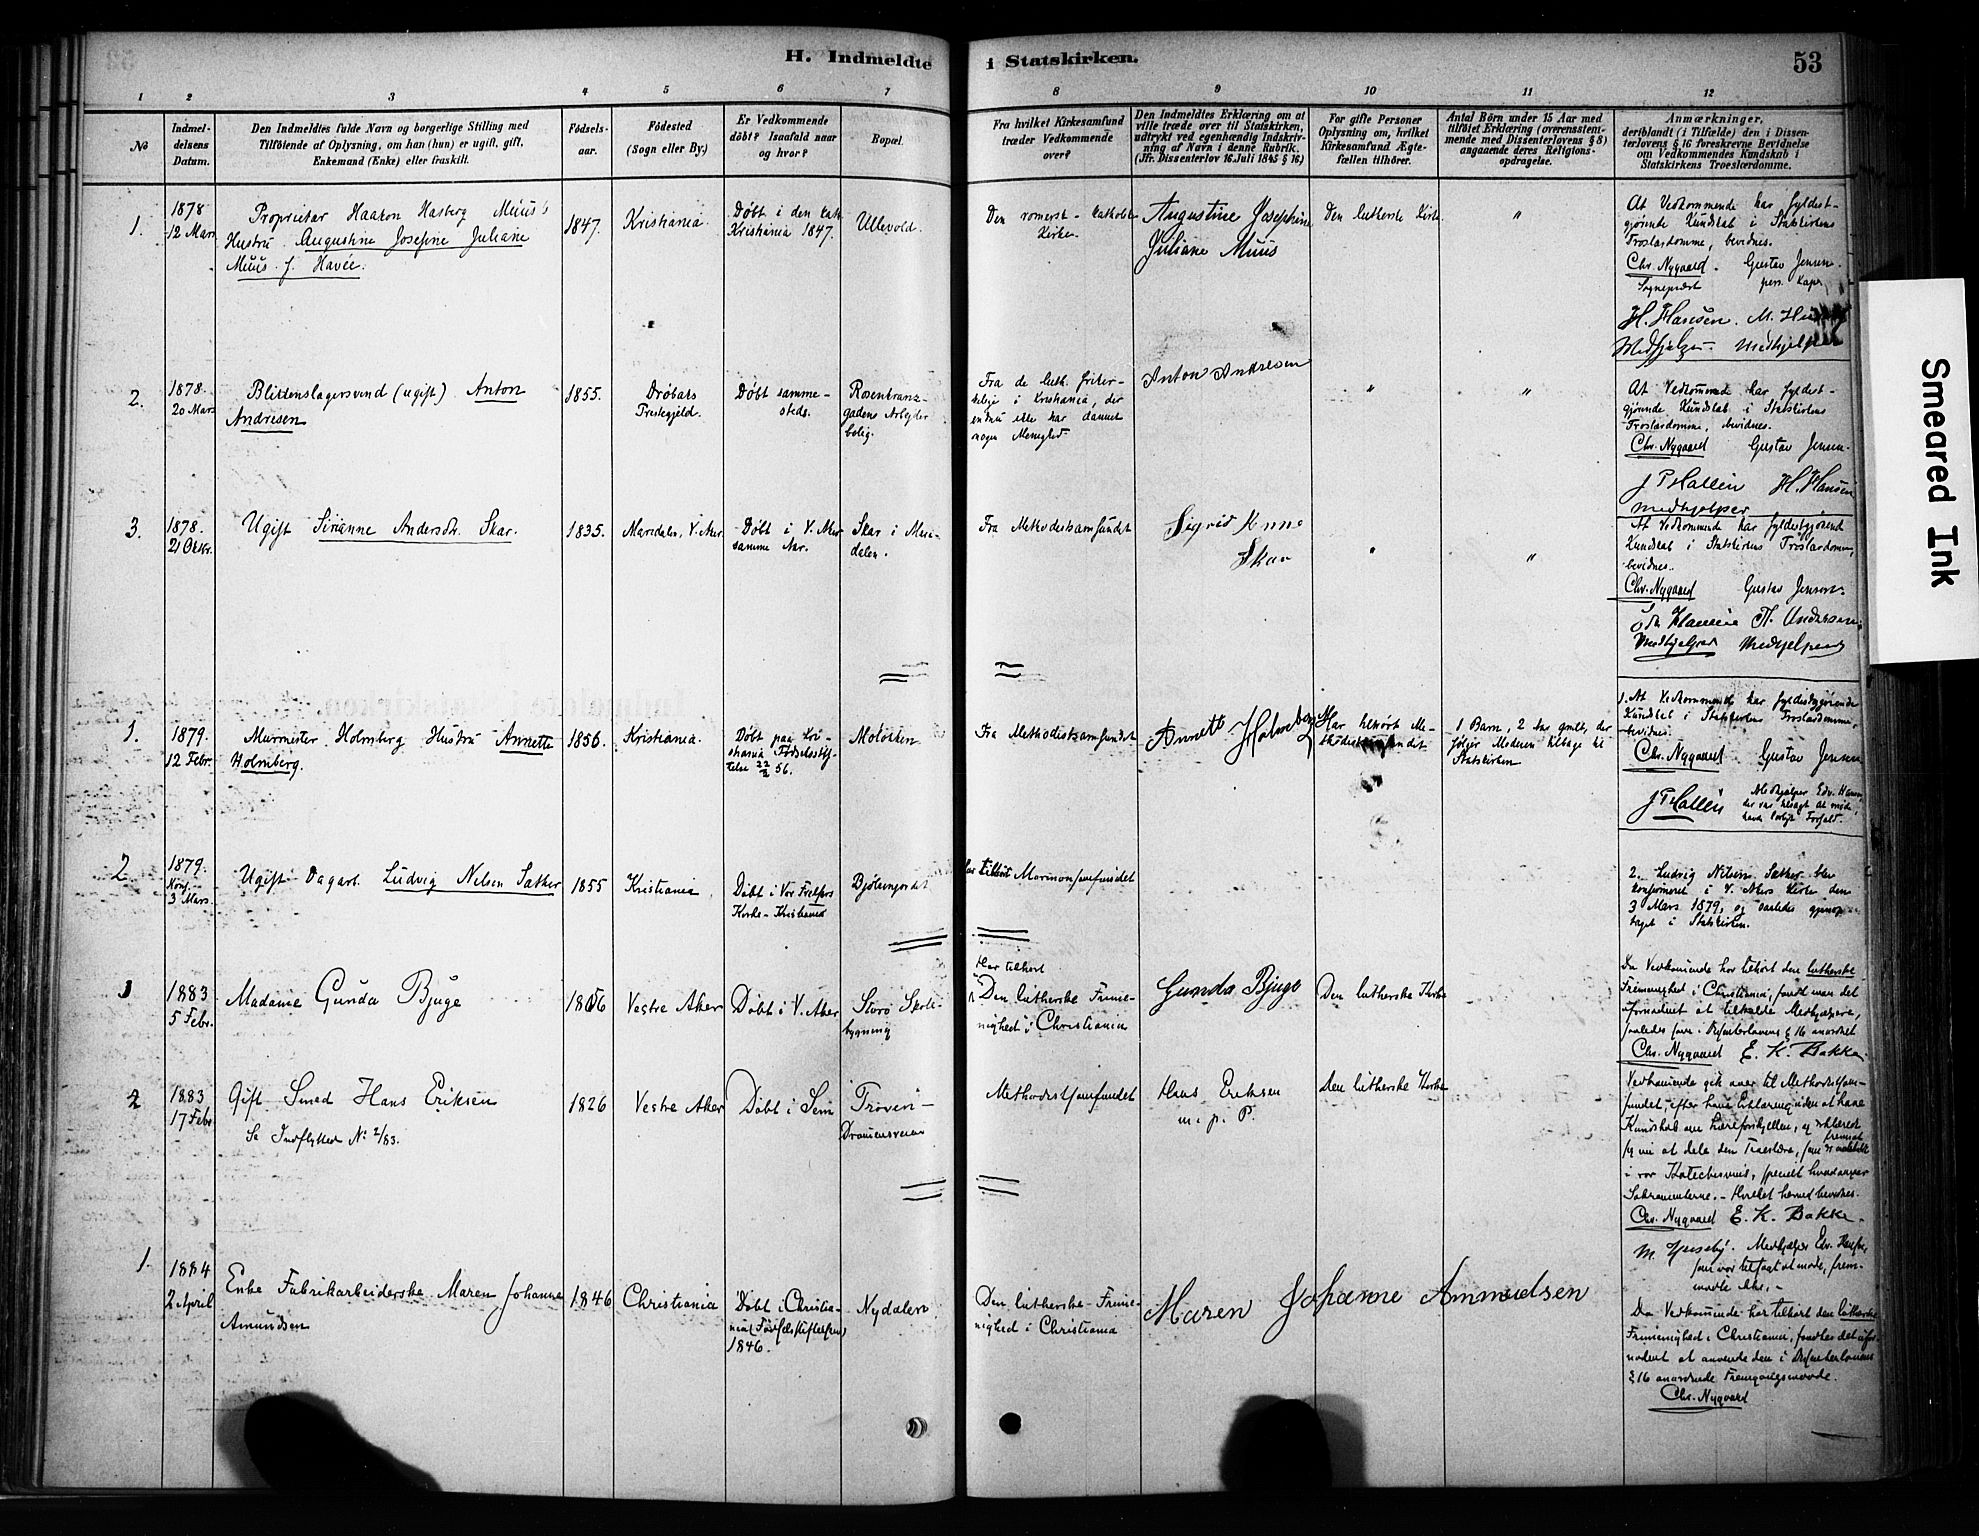 H. Indmeldte i Statskirken.
53
1 2 3 4 5 6 7 8 9 10 11 12
No
Indmel-
delsens
Datum.
Den Indmeldtes fulde Navn og borgerlige Stilling med
Tilföiende af Oplysning, om han (hun) er ugift, gift,
Enkemand (Enke) eller fraskilt.
Födsels-
aar.
Födested
(Sogn eller By.)
Er Vedkommende
döbt? Isaafald naar
og hvor?
Bopæl.
Fra hvilket Kirkesamfund
træder Vedkommende
over?
Den Indmeldtes Erklæring om at
ville træde over til Statskirken,
udtrykt ved egenhændig Indskriv-
ning af Navn i denne Rubrik.
(Jfr. Dissenterlov 16 Juli 1845 § 16)
For gifte Personer
Oplysning om, hvilket
Kirkesamfund Ægte-
fællen tilhörer.
Antal Börn under 15 Aar med
tilföiet Erklæring (overensstem-
mende med Dissenterlovens § 8)
angaaende deres Religions-
opdragelse.
Anmærkninger,
deriblandt (i Tilfælde) den i Dissen-
terlovens § 16 foreskrevne Bevidnelse
om Vedkommendes Kundskab i
Statskirkens Troeslærdomme.
1.
1878
12 Mars
Proprietær Haakon Hasberg Muus's
Hustru Augustine Josefine Juliane
Muus f. Havée.
1847.
Kristiania.
Döbt i den kath.
Kristiania 1847.
Ullevold.
Den romersk-katholske
Kirke.
Augustine Josephine
Juliane Muus
Den lutherske Kirke.
"
At Vedkommende har fyldest-
gjørende Kundskab i Statskirkens
Troslærdomme, bevidnes.
Chr. Nygaard. Gustav Jensen.
Sognepræst pers. Kap.
H. Hansen.
Medhjælper Medhjelper
2.
1878.
20 Mars
Blikkenslagersvend (ugift) Anton
Andresen
1855.
Drøbaks
Prestegjeld.
Döbt samme-
steds.
Rosenkranz-
gadens Arbeider
bolig.
Fra de luth. friker-
kelige i Kristiania, der
endnu ikke har dannet
nogen Menighed.
Anton Andresen
"
"
At Vedkommende har fyldest-
gjørende Kundskab i Statskirkens
Troslærdomme, bevidnes.
Chr. Nygaard Gustav Jensen.
J P Hallén H. Hansen
Medhjelper
3.
1878.
21 Oktbr.
Ugift Sirianne Andersdtr. Skar.
1835.
Maridalen, V. Aker.
Döbt i V. Aker
samme Aar.
Skar i Mari-
dalen.
Fra Methodistsamfundet
Sigrid Anne
Skar
"
"
At Vedkommende har fyldestgjørende
Kundskab i Statskirkens Troslærdomme,
bevidnes.
Chr. Nygaard Gustav Jensen.
Medhjelper Medhjelper
1.
1879.
12 Febr.
Murmester Holmberg Hustru Annette
Holmberg.
1856.
Kristiania.
Döbt paa Kri-
stiania Födselsstif-
telse 22/2 56.
Molökken
Fra Methodistsamfundet
Annette Holmberg
Har tilhört Me-
thodistsamfundet
1 Barn, 2 Aar gmlt, der
følger Moderen tilbage til
Statskirken
1. At Vedkommende har fyldestgjørende
Kundskab i Statskirkens Troslærdomme,
bevidnes.
Chr. Nygaard Gustav Jensen
J P Hallén
Medhjælper Edv. Hansen,
der var tilsagt at møde,
havde lovligt Forfald.
2
1879.
Konf.
3 Mars.
Ugift Dagarb. Ludvig Nilsen Sæther
1855
Kristiania
Döbt i Vor Frelsers
Kirke - Kristiania
Bjölsengordet
har tilhört Mormonsamfundet
2. Ludvig Nilsen Sæther blev
konfirmeret i V. Akers Kirke den
3 Mars 1879, og saaledes gjenop-
taget i Statskirken.
1
1883
5 Febr.
Madame Gunda Bjuge
1856
Vestre Aker
Döbt i V. Aker
Storö Skole-
bygning
Har tilhört
Den lutherske Frime-
nighed i Christiania
Gunda Bjuge
Den lutherske Kirke
Da Vedkommende har tilhört den lutherske
Frimenighed i Christiania, fandt man det
ufornødent at tilkalde Medhjælpere,
saaledes som i Dissenterlovens § 16 anordnet
Chr. Nygaard E. K. Bakke.
2
1883
17 Febr
Gift Smed Hans Eriksen
Se Indflyttede No 2/83.
1826
Vestre Aker
Döbt i Sem
Frøen-
Dramensveien
Methodistsamfundet
Hans Eriksen
m. p. P.
Den lutherske Kirke
Vedkommende gik over til Methodistsam-
fundet, efter hans Erklæring uden at have
Kundskab om Læreforskjellen, og erklærede
sig nu at dele den Troeslære, som er fremsat
i vor Katechismus, specielt hvad angaar
Sakramenterne. - Hvilket herved bevidnes.
Chr. Nygaard E. K. Bakke.
Medhjælper Edv. Hansen,
som var tilsagt at møde, frem-
mødte ikke. -
1.
1884
2 April
Enke Fabrikarbeiderske Maren Johanne
Amundsen
1846
Christiania
Döbt i Christia-
nia (Födselsstiftelsen)
1846.
Nydalen
Den lutherske Frime-
nighed i Christiania
Maren Johanne Ammudsen
Da Vedkommende har tilhört den lutherske
Frimenighed i Christiania, fandtes det ufor-
nødent at anvende den i Dissenterlovens
§ 16 anordnede Fremgangsmaade.
Chr. Nygaard
Smeared Ink